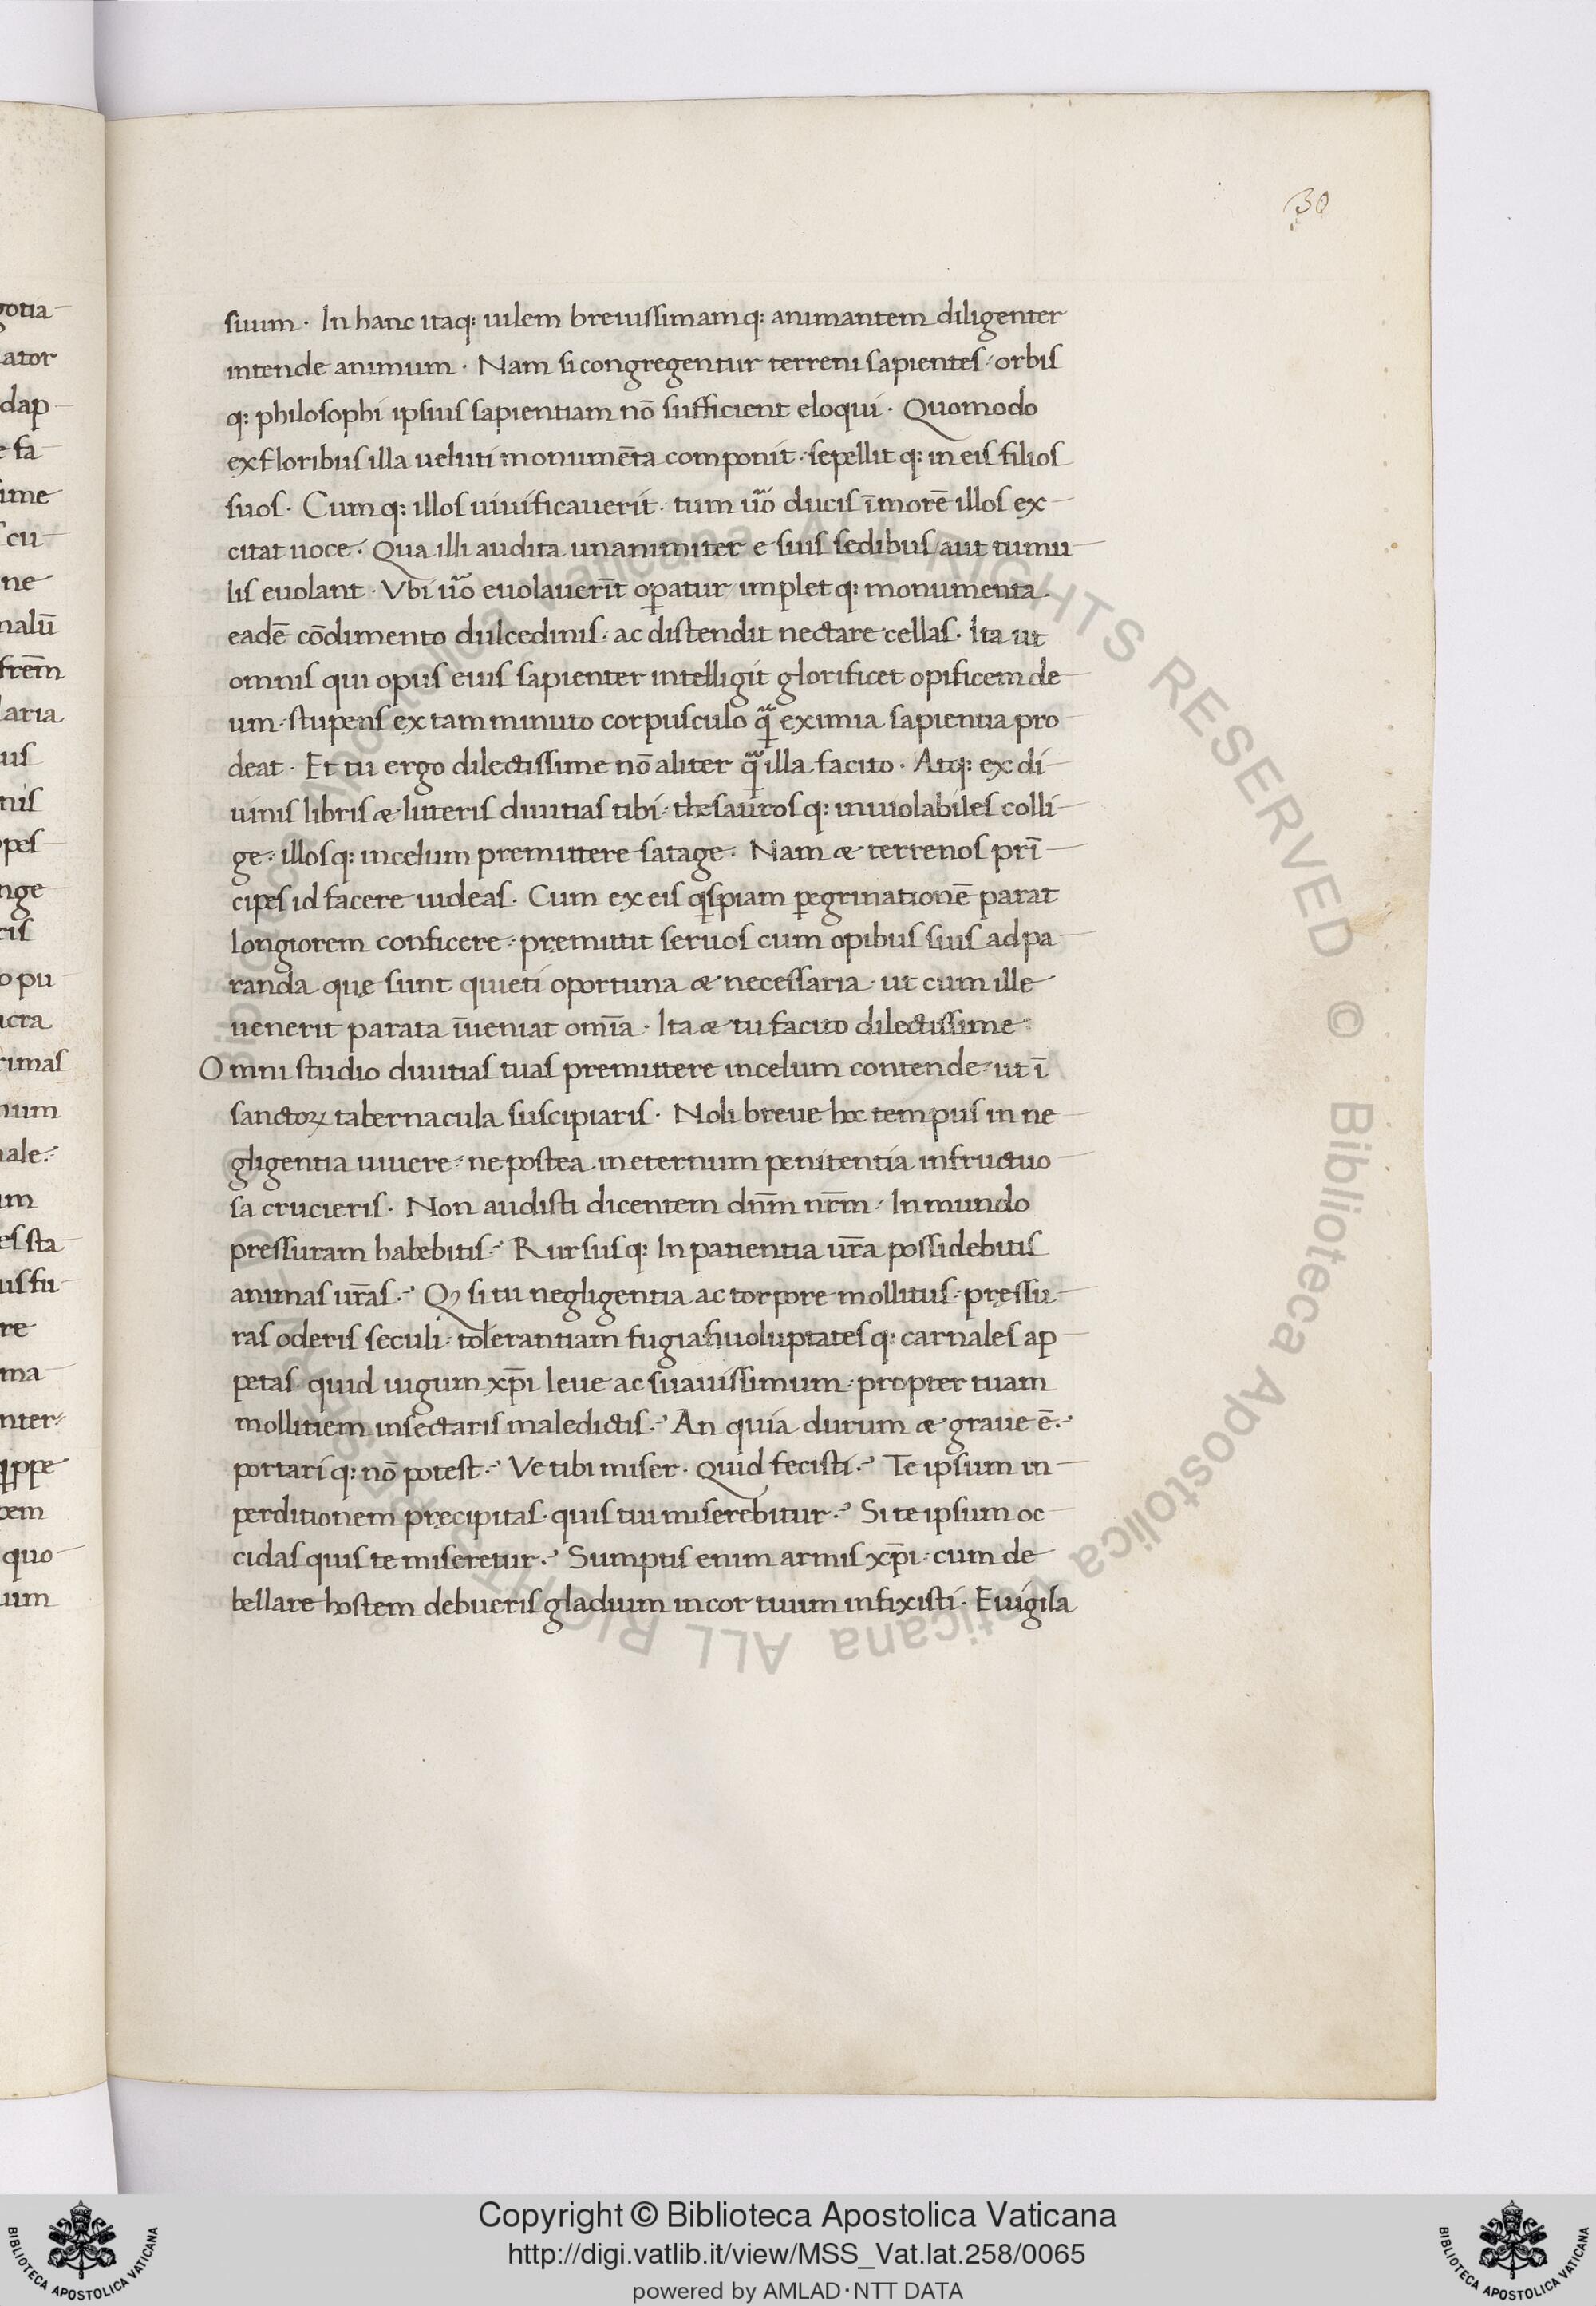 30
suum · In hanc itaq: uilem breuissimamq: animantem diligenter
intende animum · Nam si congregentur terreni sapientes · orbis
q: philosophi ipsius sapientiam nō sufficient eloqui · Quomodo
ex floribus illa ueluti monumēta componit · sepellit q: in eis filios
suos · Cumq: illos uiuificauerit · tum ũo ducis ī morē illos ex
citat uoce · Qua illi audita unanimiter e suis sedibus aut tumu
lis euolant · Vbi ũo euolauerīt oꝑatur implet q: monumenta ·
eadē cōdimento dulcedinis · ac distendit nectare cellas · Ita ut
omnis qui opus eius sapienter intelligit glorificet opificem de
um · stupens ex tam minuto corpusculo q̃ eximia sapientia pro
deat · Et tu ergo dilectissime nō aliter q̃ illa facito · Atq: ex di
uinis libris & litteris diuitias tibi · thesauros q: inuiolabiles colli
ge · illosq: in celum premittere satage · Nam & terrenos prī
cipes id facere uideas · Cum ex eis qspiam ꝑegrinationē parat
longiorem conficere · premittit seruos cum opibus suis ad pa
randa quę sunt quieti oportuna & necessaria · ut cum ille
uenerit parata īueniat omīa · Ita & tu facito dilectissime
Omni studio diuitias tuas premittere in celum contende · ut ī
sanctoꝝ tabernacula suscipiaris · Noli breue hoc tempus in ne
gligentia uiuere · ne postea in eternum penitentia infructuo
sa crucieris · Non audisti dicentem dn̄m nr̄m · In mundo
pressuram habebitis · Rursusq: In patientia ur̄a possidebitis
animas ur̄as · Qꝫ si tu negligentia ac torpore mollitus · pręssu
ras oderis seculi · tolerantiam fugias uoluptatesq: carnales ap
petas · quid iugum xp̄i leue ac suauissimum · propter tuam
mollitiem insectaris maledictis · An quia durum & graue ē ·
portari q: nō potest · Ve tibi miser · Quid fecisti · Te ipsum in
perditionem pręcipitas · quis tui miserebitur · Si te ipsum oc
cidas quis te miseretur · Sumptis enim armis xp̄i · cum de
bellare hostem debueris gladium in cor tuum infixisti · Euigila
Copyright © Biblioteca Apostolica Vaticana
http://digi.vatlib.it/view/MSS_Vat.lat.258/0065
powered by AMLAD·NTT DATA